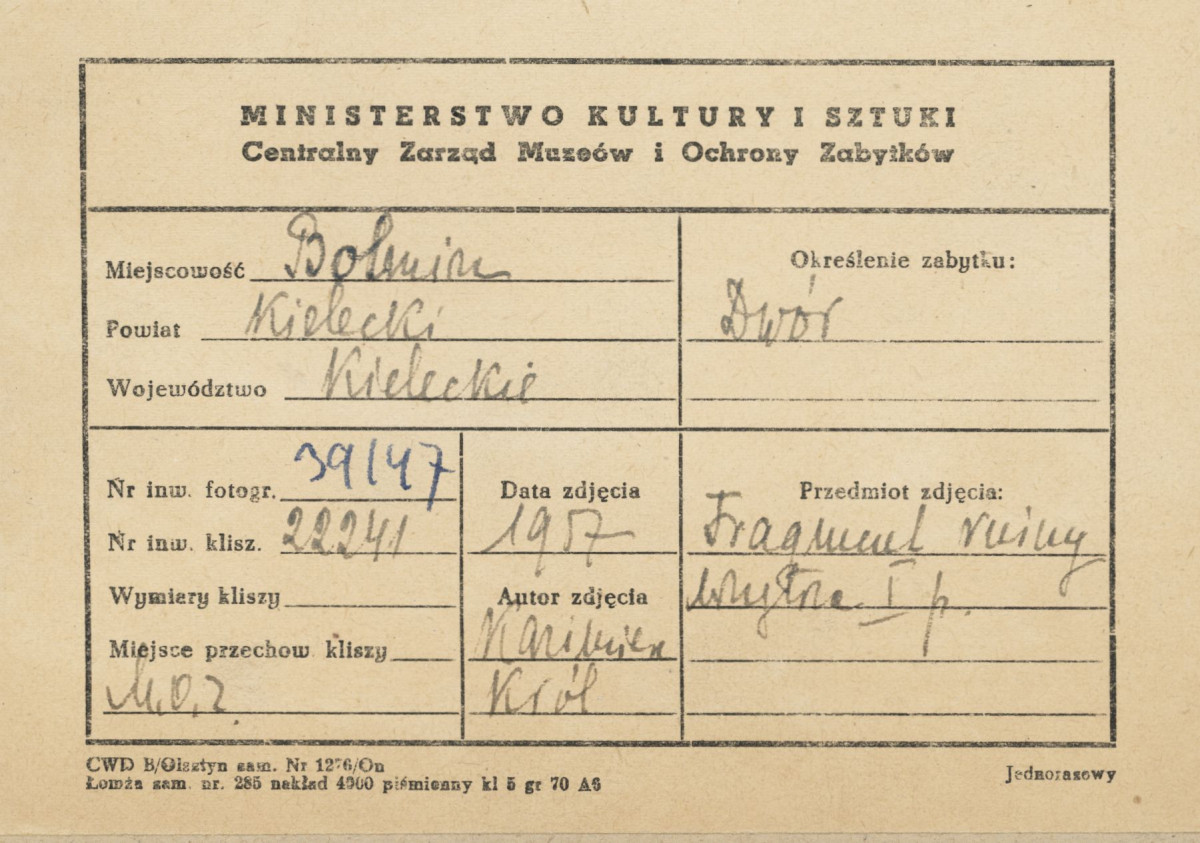 MINISTERSTWO KULTURY I SZTUKI
Centralny Zarząd Muzeów i Ochrony Zabytków
Miejscowość Bolmin
Powiat Kielecki
Województwo Kieleckie
Określenie zabytku:
Dwór
Nr inw. fotogr. 39147
Nr inw. klisz. 22241
Wymiary kliszy
Miejsce przechow kliszy
M.O.Z.
Data zdjęcia
1957
Autor zdjęcia
Kazimierz
Król
Przedmiot zdjęcia:
Fragment ruiny
wnętrze I p.
CWD B/Olsztyn zam. Nr 1276/On
Łomża zam. nr. 285 nakład 4000 piśmienny kl 5 gr 70 A6
Jednorazowy